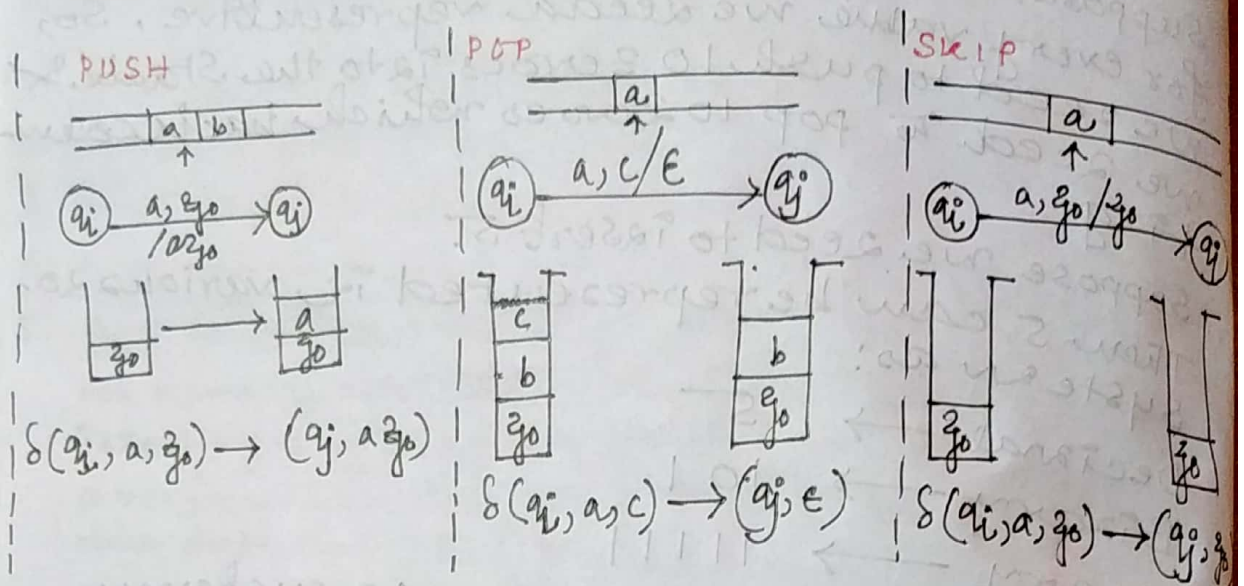 PUSH
a b
qi a, z0 /az0 qj
z0 a z0
δ(qi, a, z0) → (qj, az0)
POP
a
qi a, c/ε qj
c
b
z0
b
z0
δ(qi, a, c) → (qj, ε)
SKIP
a
qi a, z0/z0 qj
z0 z0
δ(qi, a, z0) → (qj, z0